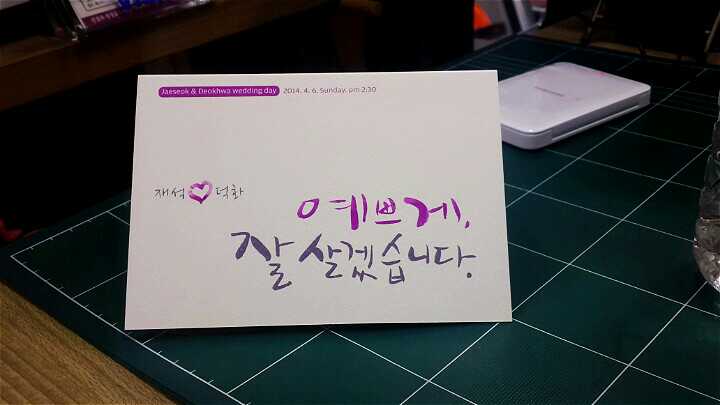 Jaeseok & Deokhwa wedding day 2014. 4. 6. Sunday. pm 2:30
재석 덕화
예쁘게,
잘 살겠습니다.